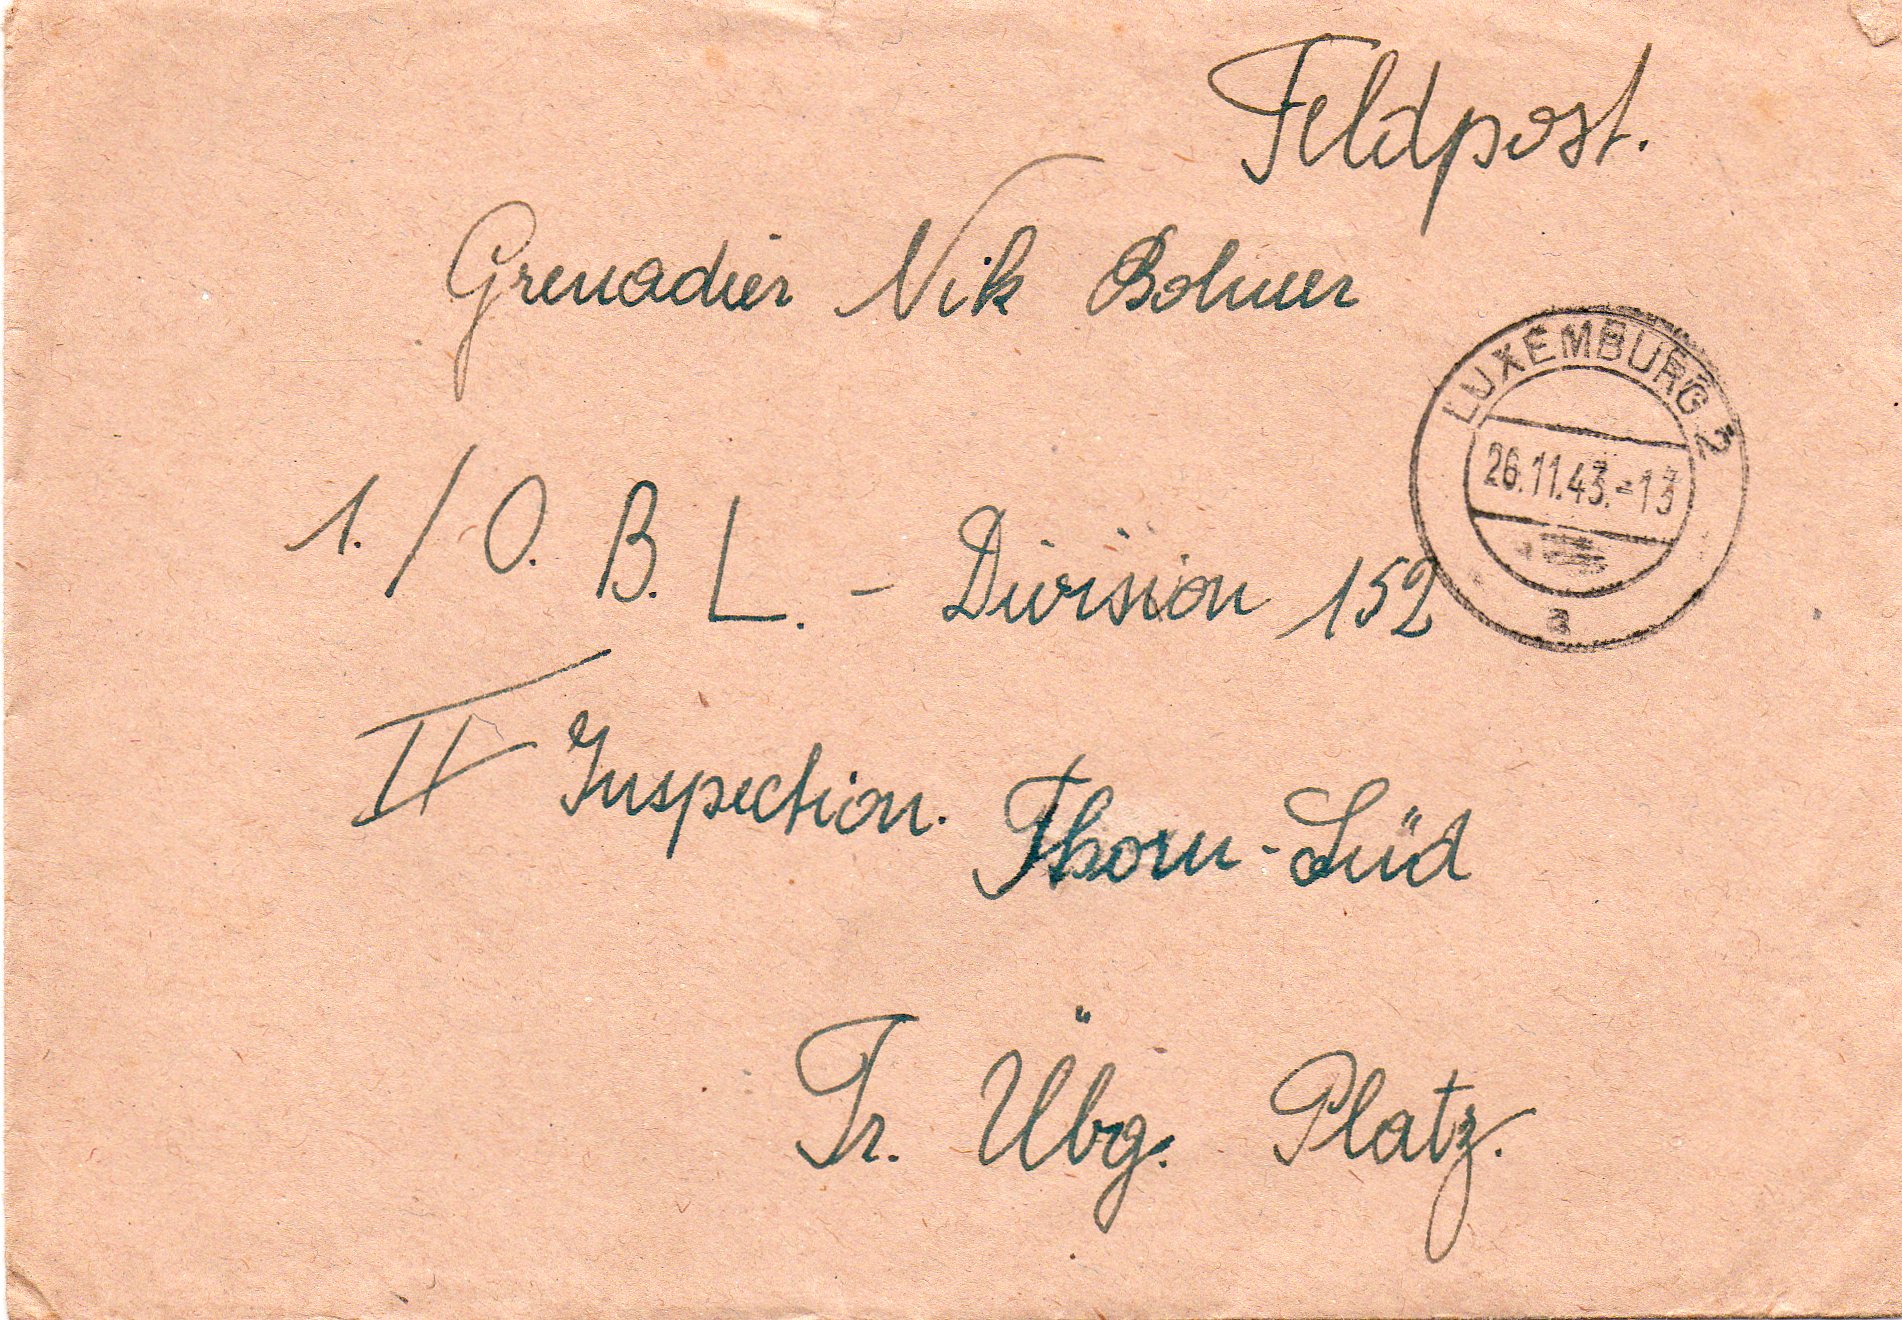 Feldpost.
Grenadier Nik Bohmer
1./O. B. L. - Division 152
LUXEMBURG 2
26.11.43.-13
a
II Inspection. Thorn-Süd
Tr. Übg. Platz.